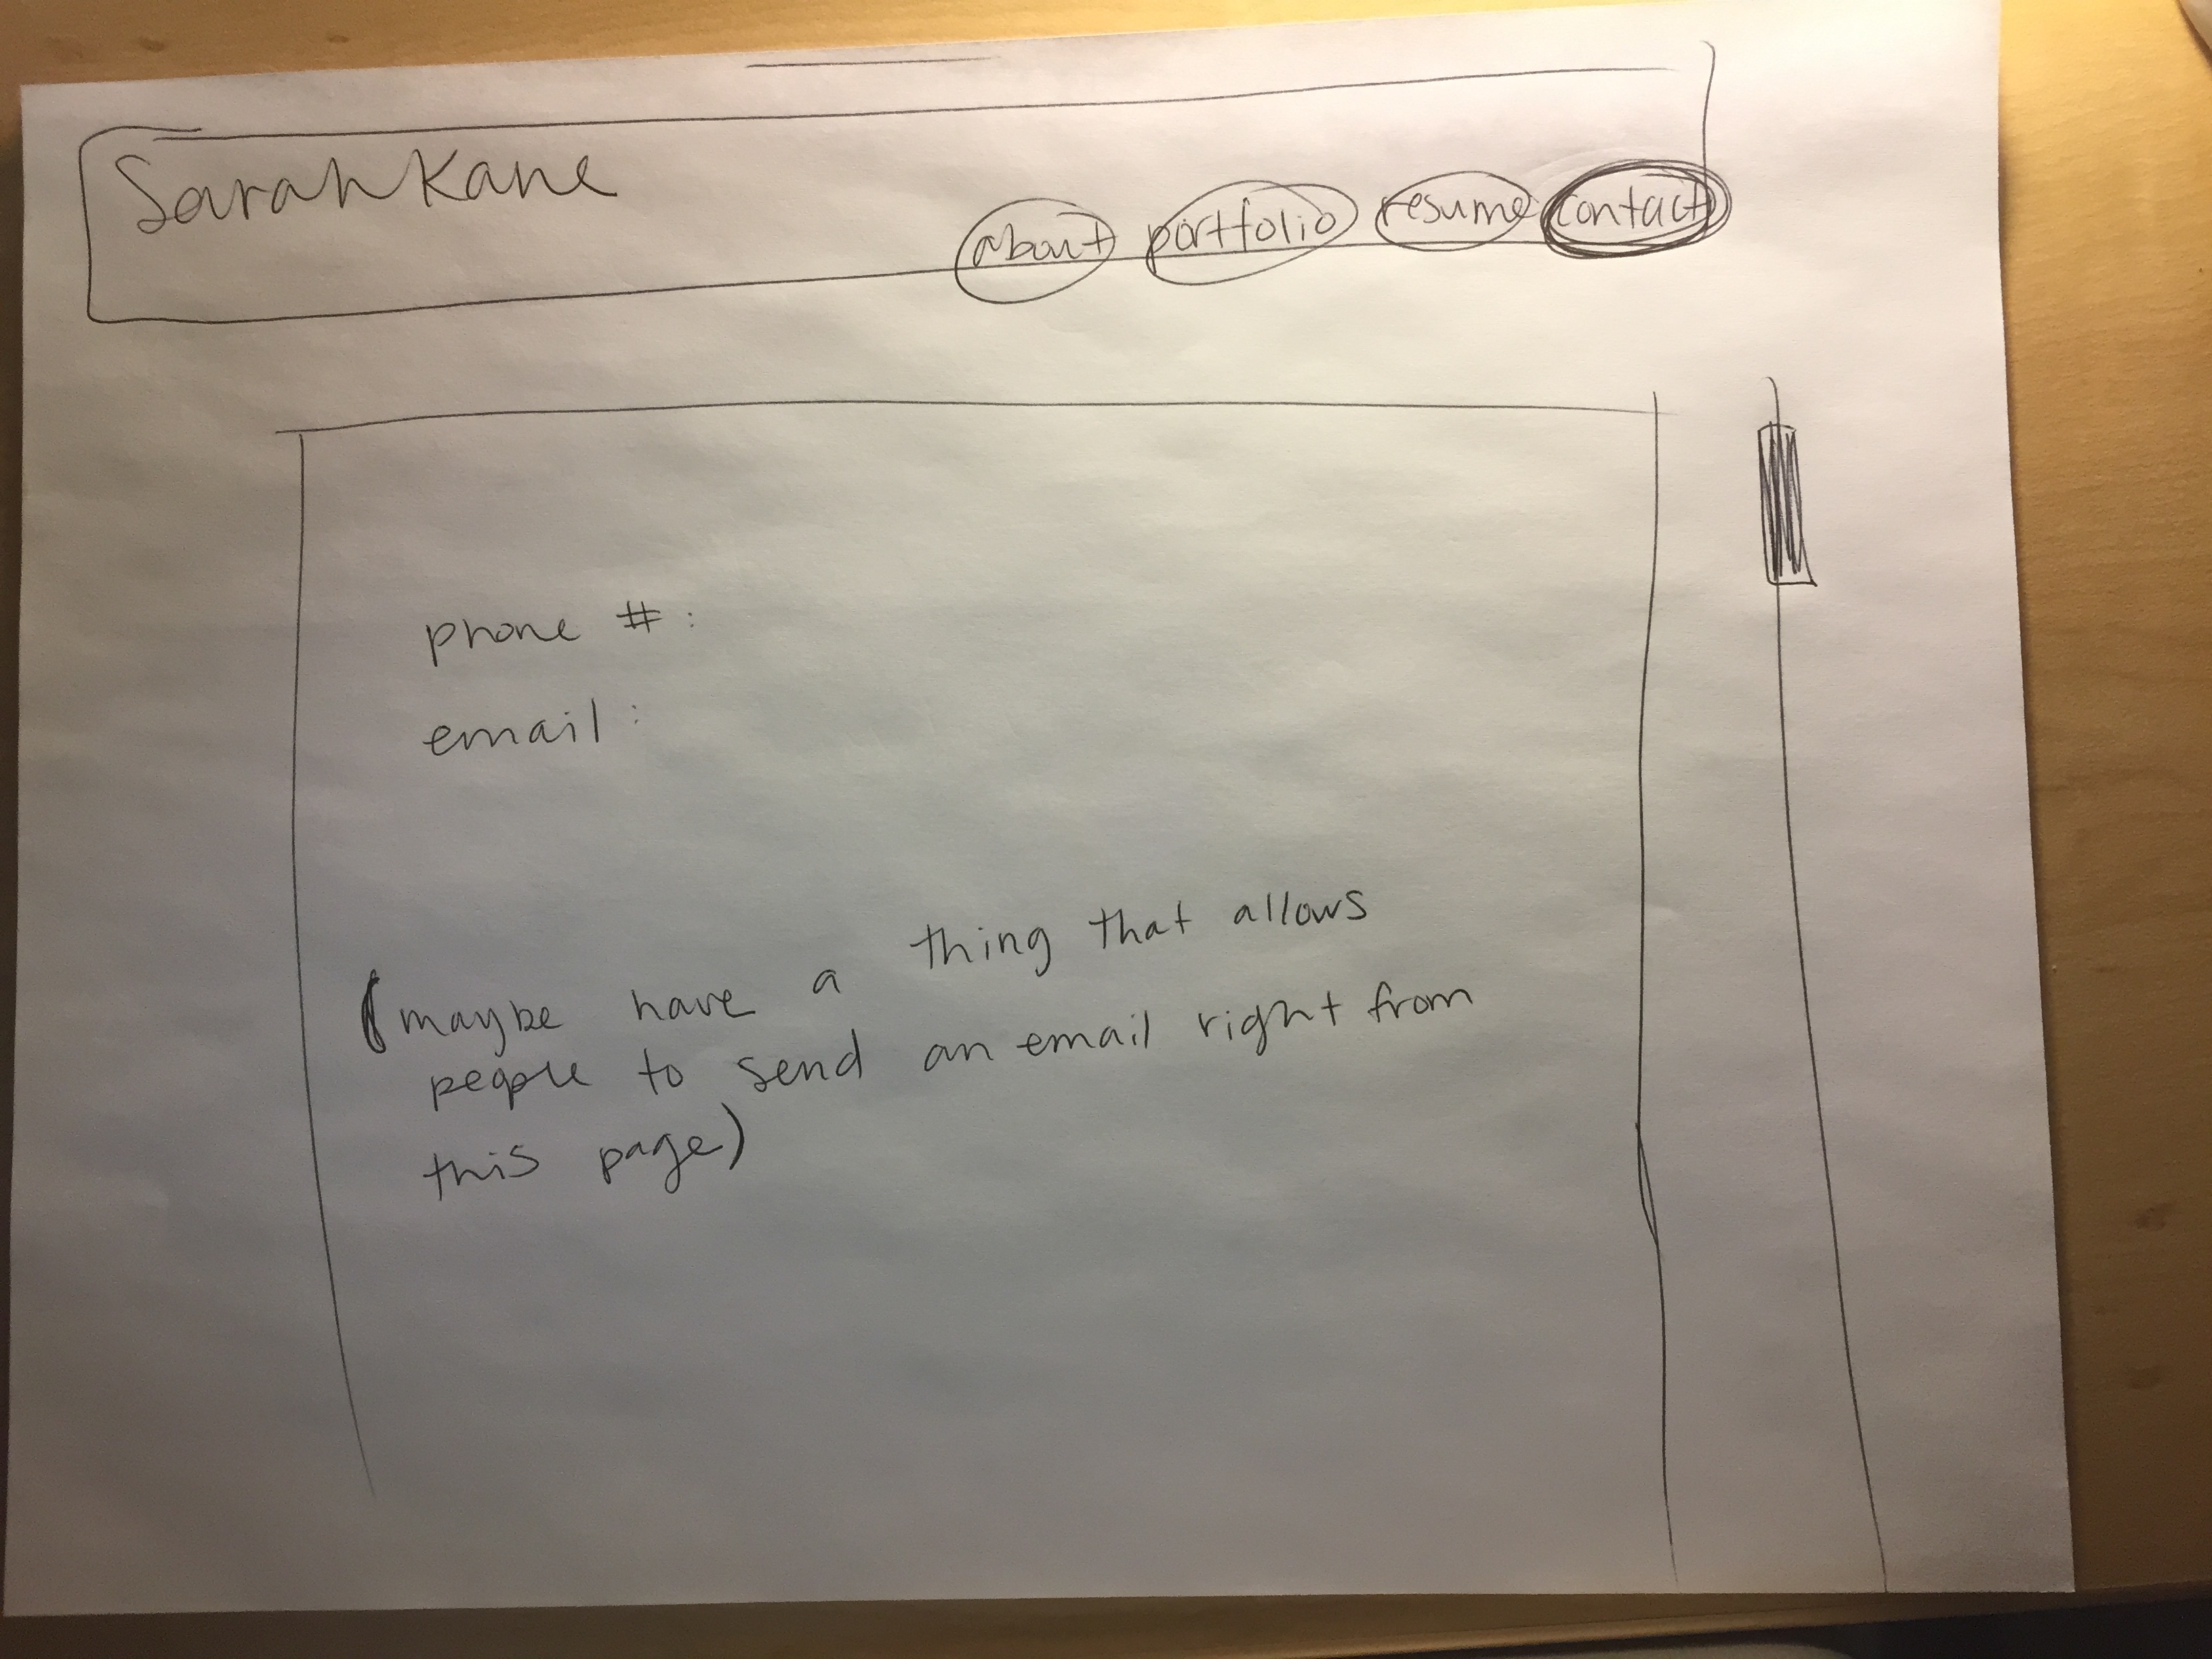 Sarah Kane
about portfolio resume contact
phone #:
email:
(maybe have a thing that allows
people to send an email right from
this page)